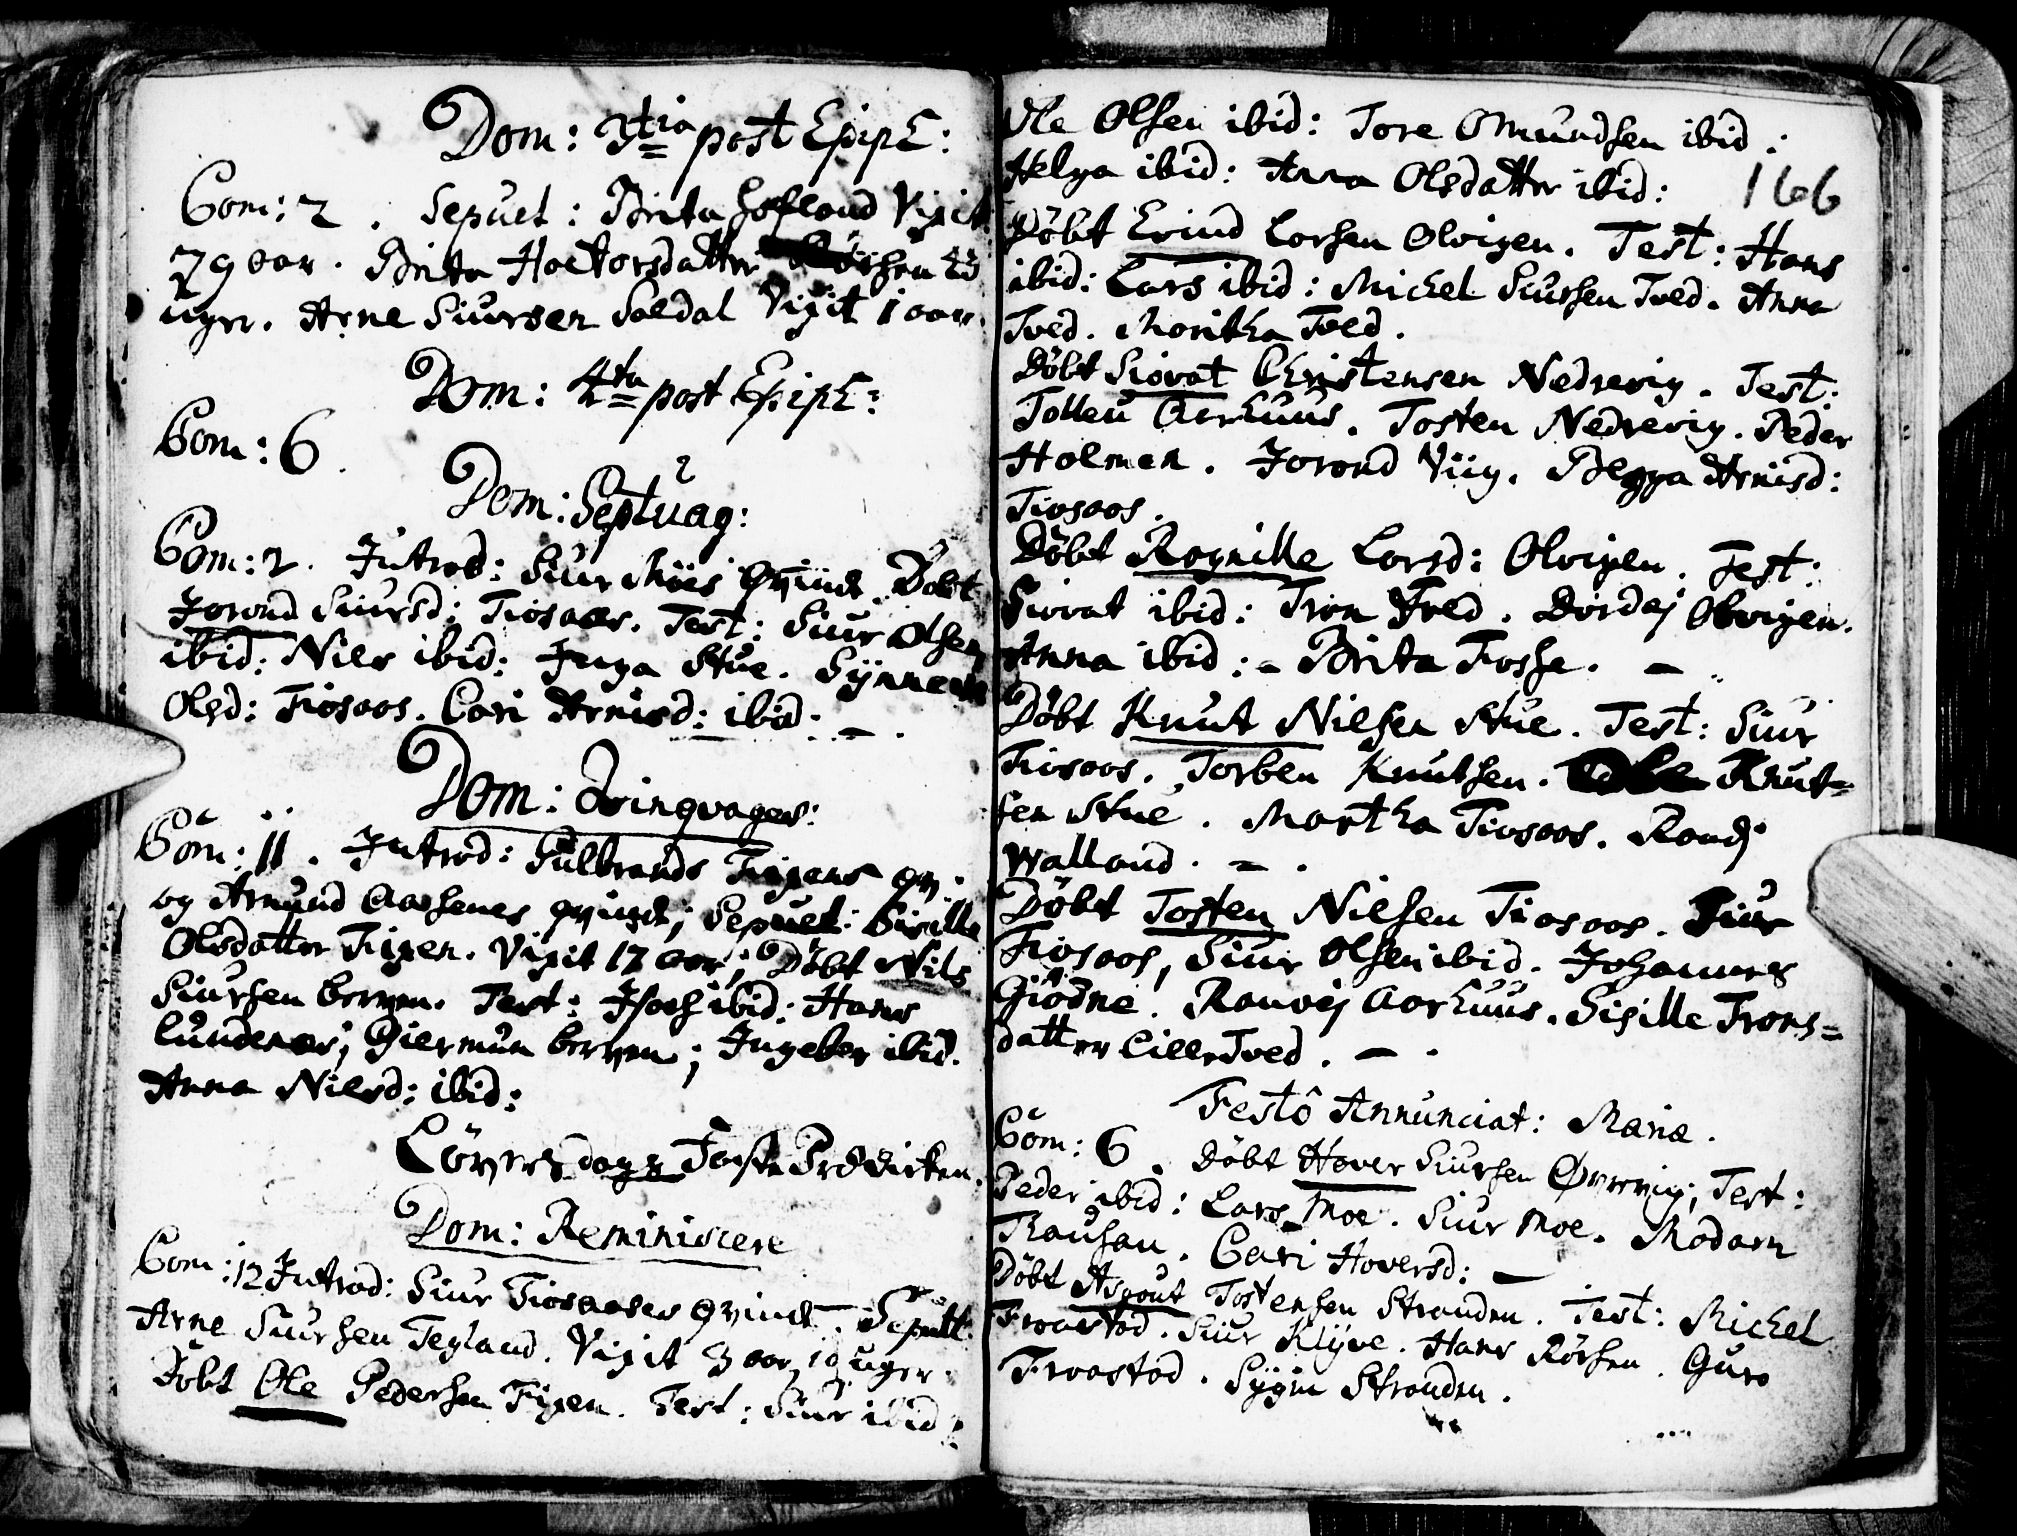 Dom: 3tia post Epiph:
Com: 2. Sepult: Brita Hofland Vixit
79 aar. Brita Hactorsdatter
uger. Arne Siursen Saedal Vixit 1 aar.
Dom: 4ta post Epiph:
Com: 6.
Dom: Septuag:
Com: 2. Introd: Siur Miies qvinde. Döbt
Jorond Siursd: Tiosaas. Test: Siur Olsen
ibid: Niels ibid: Inga Stue. Synneva
Olsd: Tiosaas. Cari Arnisd: ibid:
Dom: Qvinqvages:
Com: 11. Introd: Gulbrands Tixens qv:
og Amund Aasenes qvinde; Sepult: Sisille
Olsdatter Tixen. Vixit 17 aar; Döbt Nils
Siursen Berven. Test: Isach ibid: Hans
Lundenes; Giermun Berven; Ingebor ibid.
Anna Nilsd: ibid:
Löverdags Faste Prædicken.
Dom: Reminiscere
Com: 12 Introd: Siur Tiosaases qvinde. Sepult:
Arne Siursen Tegland. Vixit 3 aar 19 uger.
Döbt Ole Pedersen Tixen. Test: Siur ibid:
Ole Olsen ibid: Tore Omundsen ibid:
Helga ibid: Anna Olsdatter ibid:
166
Döbt Erind Larsen Alvigen. Test: Hans
ibid: Lars ibid: Michel Siursen Tved. Anna
Tved. Moritha Tved.
Döbt Siovat Christensen Nedrevig. Test:
Tolleu Aarhuus. Tosten Nedrevig. Peder
Holmen. Jorond Viig. Begga Arnisd:
Tiosaas.
Döbt Ragnille Larsd: Alvigen. Test:
Siovat ibid: Tron Tved. Dordej Alvigen.
Anna ibid: - Brita Fosse. -
Döbt Knut Nielsen Stue. Test: Siur
Tiosaas. Torben Knutsen. Knut=
sen Stue. Martha Tiosaas. Randj
Walland. -
Döbt Tosten Nielsen Tiosaas. Siur
Tiosaas, Siur Olsen ibid. Johannes
Giödne. Ranvej Aarhuus. Sisille Trons=
datter Lille Tved. -
Festô Annunciat: Mariæ.
Com: 6. Döbt Hover Siursen Øvrevig; Test:
Peder ibid: Lars Moe. Siur Moe. Madam
Cari Hoversd: -
Döbt Asgout Tostensen Stranden. Test: Michel
Froastad. Siur Klyve. Hans Röysen. Guro
Froastad. Sygni Stranden.